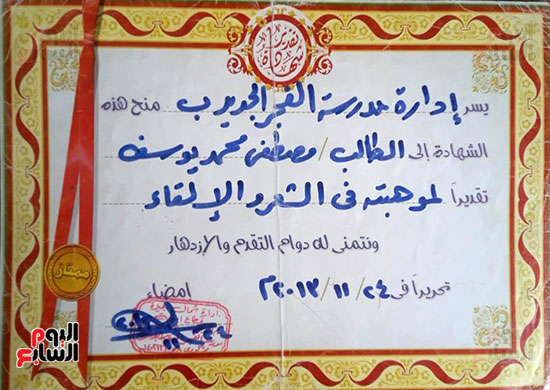 شهادة تقدير
يسر إدارة مدرسة الفجر الجديد ب منح هذه
الشهادة إلى الطالب / مصطفى محمد يوسف
تقديراً لموهبته فى الشعر و الإلقاء
ونتمنى له دوام التقدم والإزدهار
تحريراً فى ٢٤ / ١١ / ٢٠١٣م إمضاء
ممتاز
اليوم السابع